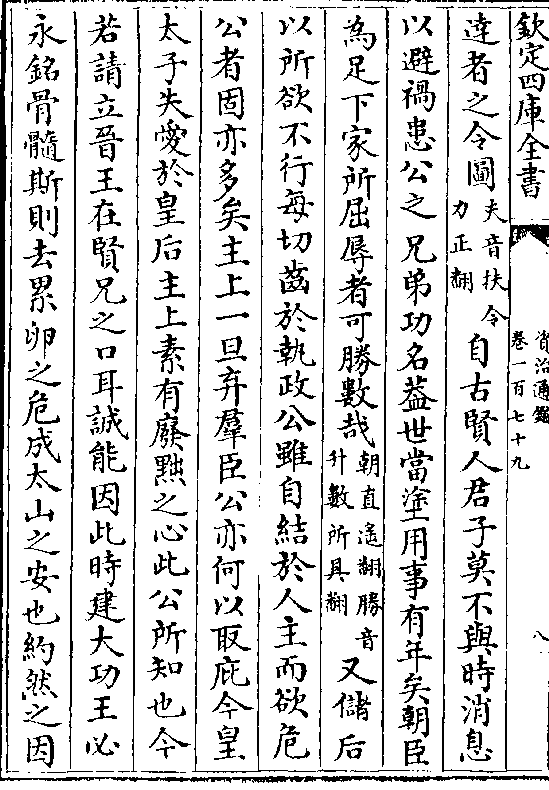 欽定四庫全書
資治通鑑
卷一百七十九
八
違者之令圖夫音扶令力正翻自古賢人君子莫不與時消息
以避禍患公之兄弟功名葢世當塗用事有年矣朝臣
為足下家所屈辱者可勝數哉朝直遙翻勝音升數所具翻又儲后
以所欲不行每切齒於執政公雖自結於人主而欲危
公者固亦多矣主上一旦弃羣臣公亦何以取庇今皇
太子失愛於皇后主上素有廢黜之心此公所知也今
若請立晉王在賢兄之口耳誠能因此時建大功王必
永銘骨髓斯則去累卵之危成太山之安也約然之因